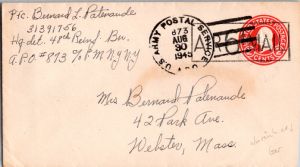 Pfc. Bernard L. Patenaude
31391756
Hq. det. 4th Reinf. Bn.
A.P.O. #873 % P.M. N.Y. N.Y.
U.S. ARMY POSTAL SERVICE
873
AUG
30
1945
A.P.O.
UNITED STATES POSTAGE
CENTS
Mrs Bernard Patenaude
42 Park Ave.
Webster, Mass.